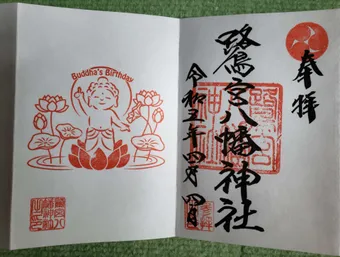 Buddha's Birthday
奉拝
鷺宮八幡神社
令和五年四月四日